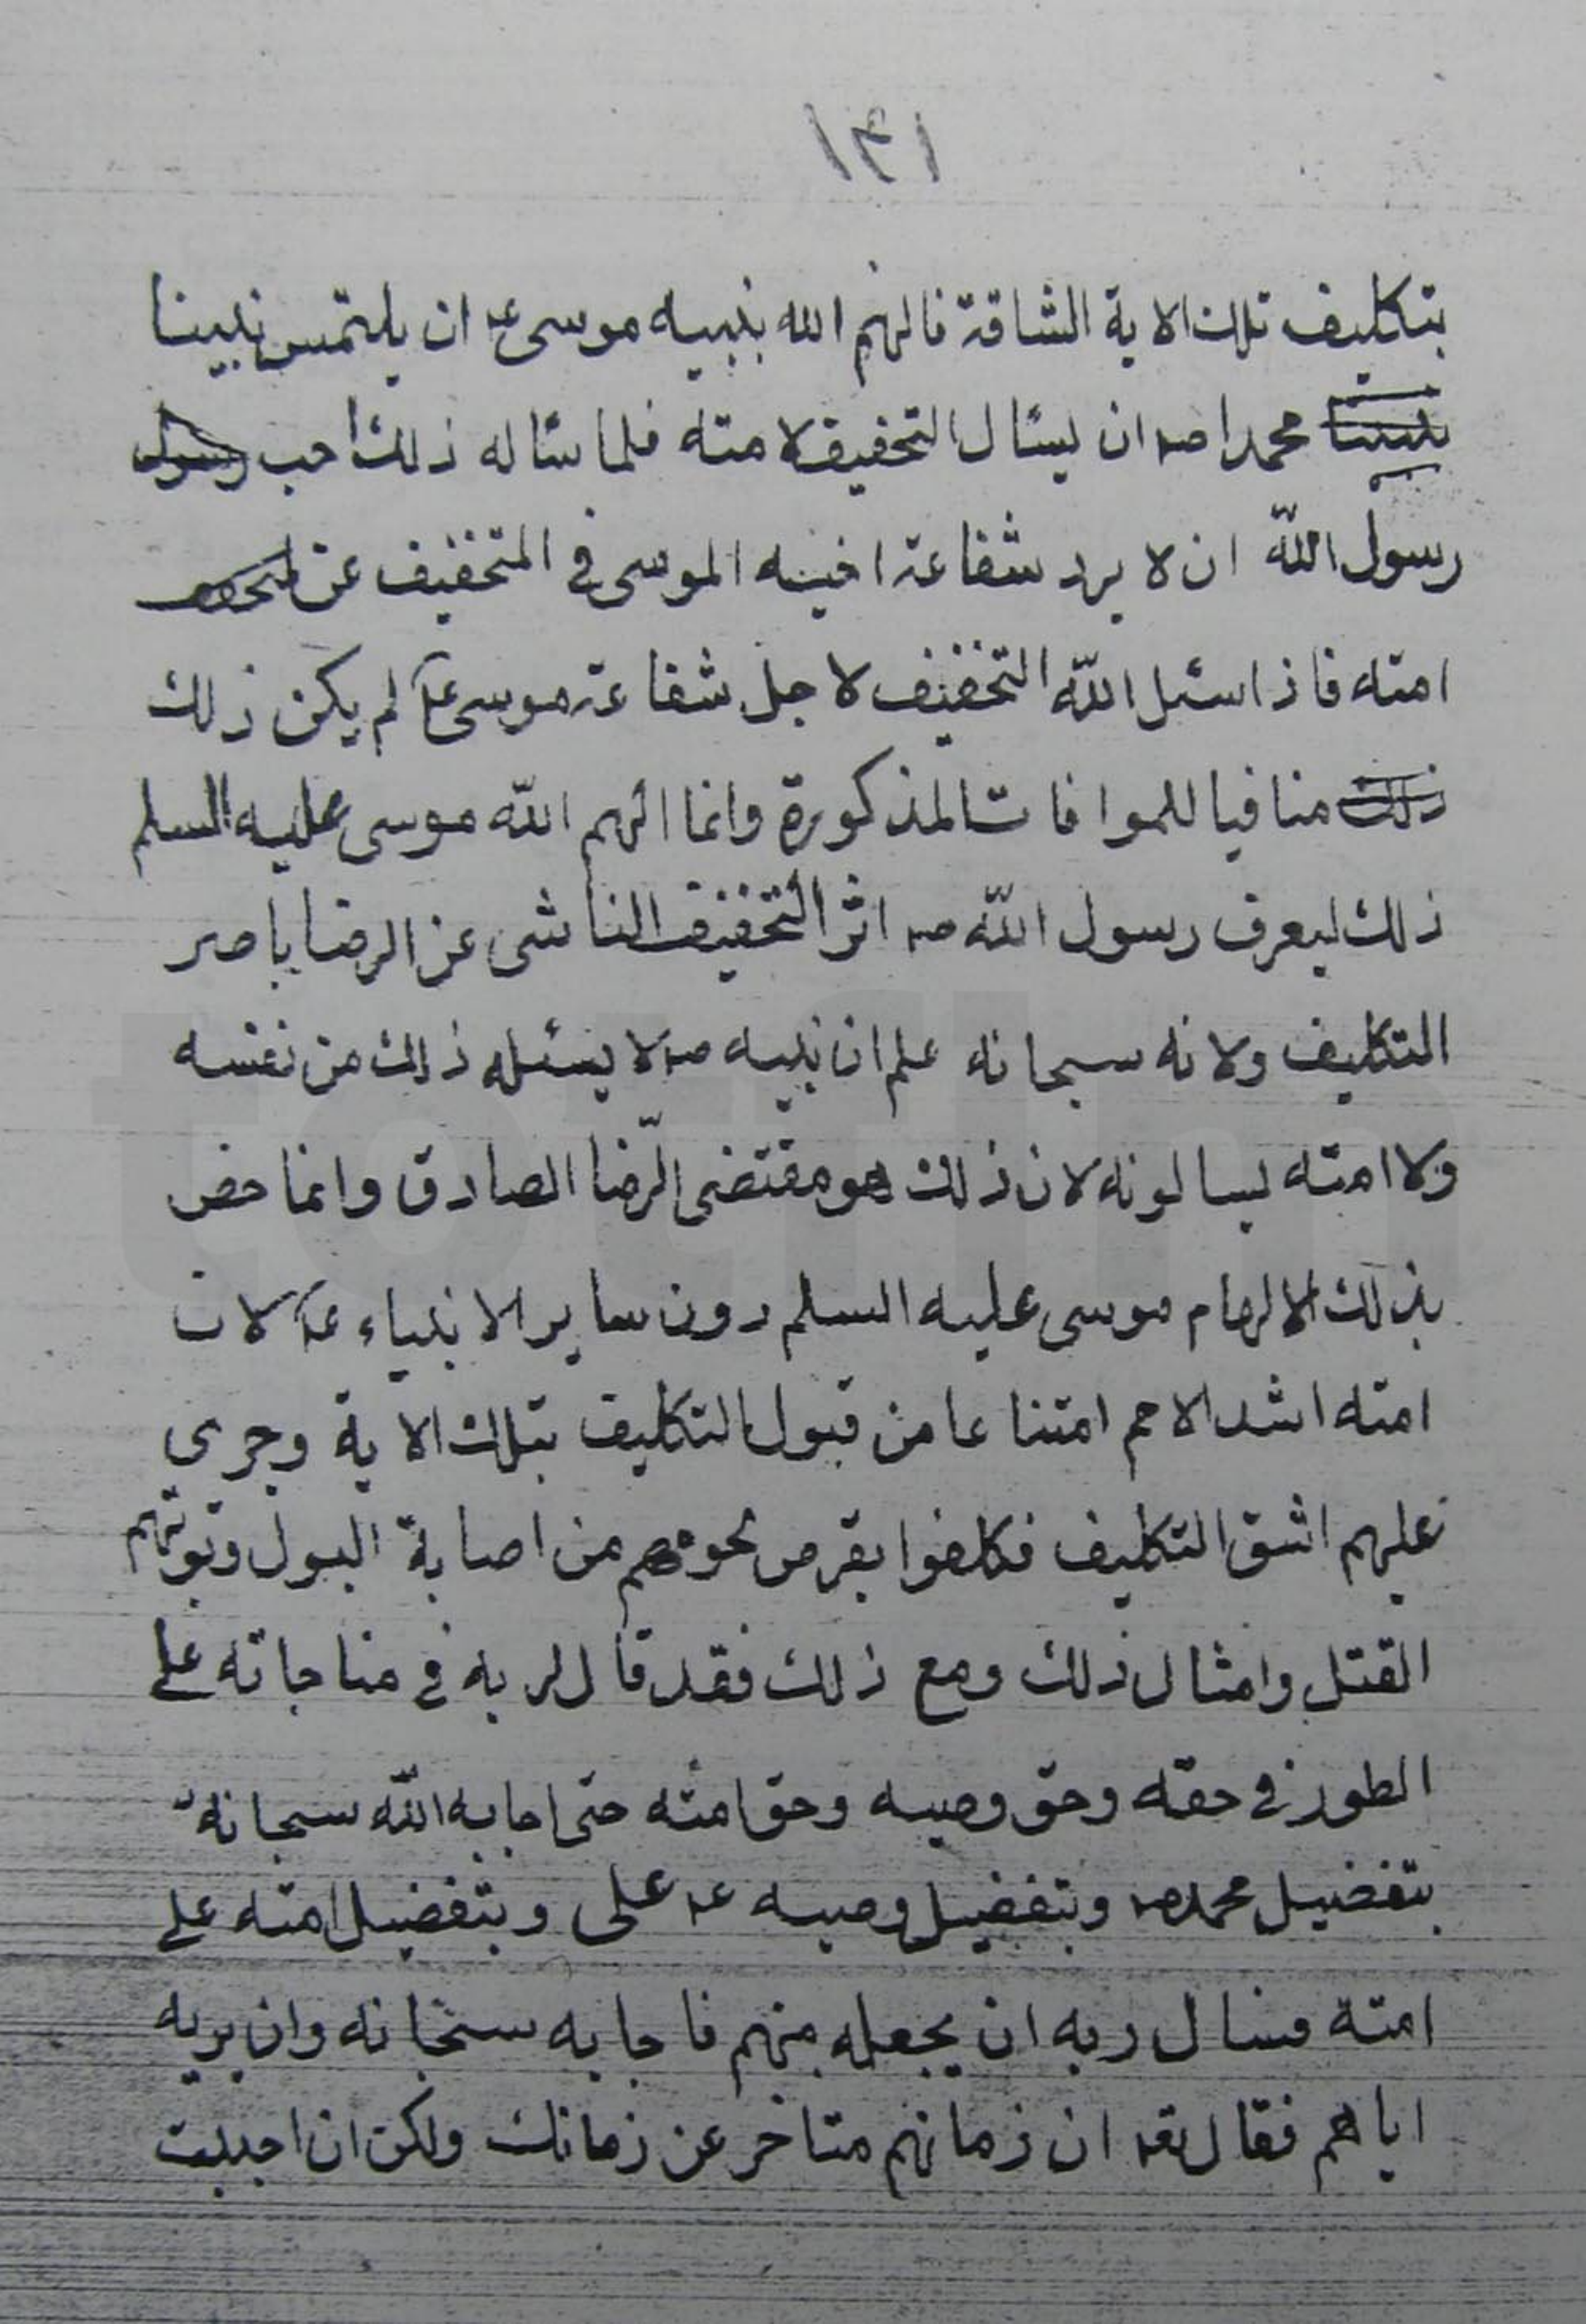 ١٣١
بتكليف تلك الاية الشاقة فالهم الله بنبيه موسى ع ان يلتمس نبينا
نبينا محمدا صه ان يسئال التخفيف لامته فلما سئاله ذلك احب رسول
رسول الله ان لا يرد شفاعة اخيه الموسى في التخفيف عن
امته فاذا سئل الله التخفيف لاجل شفاعة موسى ع لم يكن ذلك
ذلك منافيا للموافات المذكورة وانما الهم الله موسى عليه السلم
ذلك ليعرف رسول الله صه اثر التخفيف الناشى عن الرضا باصر
التكليف ولانه سبحانه علم ان نبيه صه لا يسئله ذلك من نفسه
ولا امته ليسالونه لان ذلك هو مقتضى الرّضا الصادق وانما خص
بذلك الالهام موسى عليه السلم دون ساير الانبياء ع لان
امته اشد الامم امتناعا من قبول التكليف بتلك الاية وجرى
عليهم اشق التكليف فكلفوا بقرض لحومهم من اصابة البول وتوبتهم
القتل وامثال ذلك ومع ذلك فقد قال لربه في مناجاته على
الطور في حقه وحق وصيه وحق امته حتى اجابه الله سبحانه
بتفضيل محمد صه وبتفضيل وصيه ع على وبتفضيل امته على
امته فسال ربه ان يجعله منهم فاجابه سبحانه وان يريه
اياهم فقال تعه ان زمانهم متاخر عن زمانك ولكن ان احببت